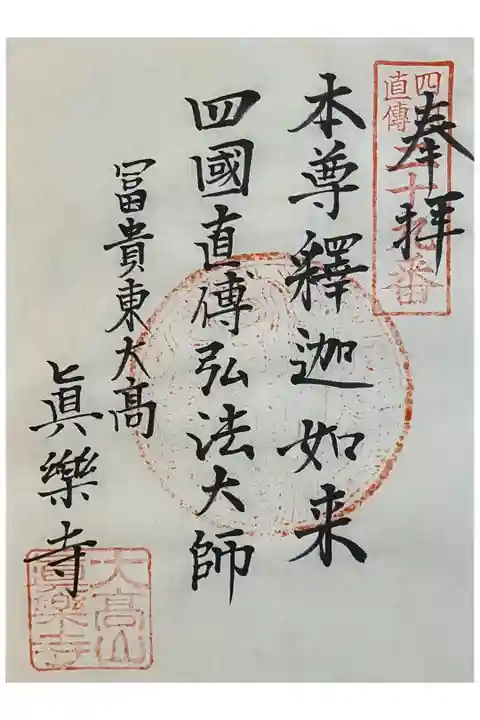 奉拝
直傳
十九番
本尊釋迦如来
四國直傳弘法大師
冨貴東大高
眞樂寺
大高山
眞樂寺